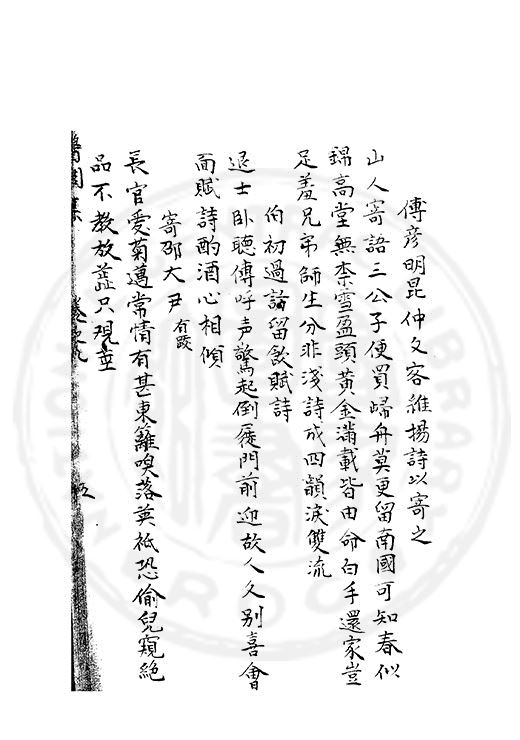 傅彦明昆仲久客維揚詩以寄之
山人寄語三公子便買歸舟莫更留南國可知春似
錦高堂無柰雪盈頭黃金滿載皆由命白手還家豈
足羞兄弟師生分非淺詩成四韻淚雙流
伯初過訪留飲賦詩
退士卧聽傳呼声驚起倒屣門前迎故人久别喜會
面賦詩酌酒心相傾
寄邵大尹 有跋
長官愛菊邁常情有甚東籬嗅落英祗恐偷兒窺絶
品不教放蕋只覌莖